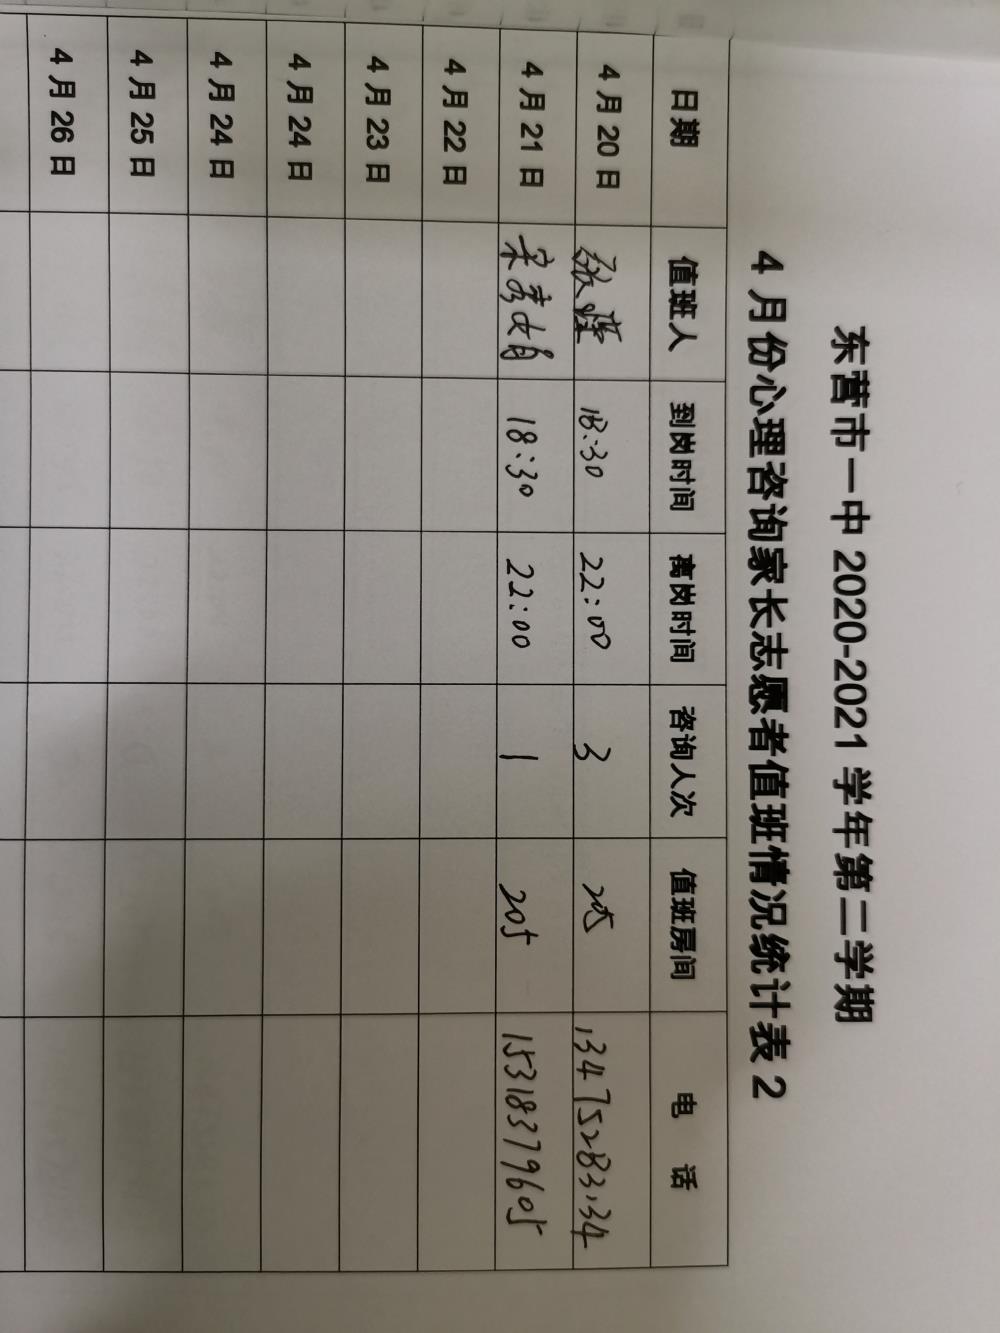 东营市一中 2020-2021 学年第二学期
4 月份心理咨询家长志愿者值班情况统计表 2
日期 值班人 到岗时间 离岗时间 咨询人次 值班房间 电 话
4 月 20 日 张 18:30 22:00 3 205 13475283134
4 月 21 日 宋秀娟 18:30 22:00 1 205 15318379605
4 月 22 日
4 月 23 日
4 月 24 日
4 月 24 日
4 月 25 日
4 月 26 日